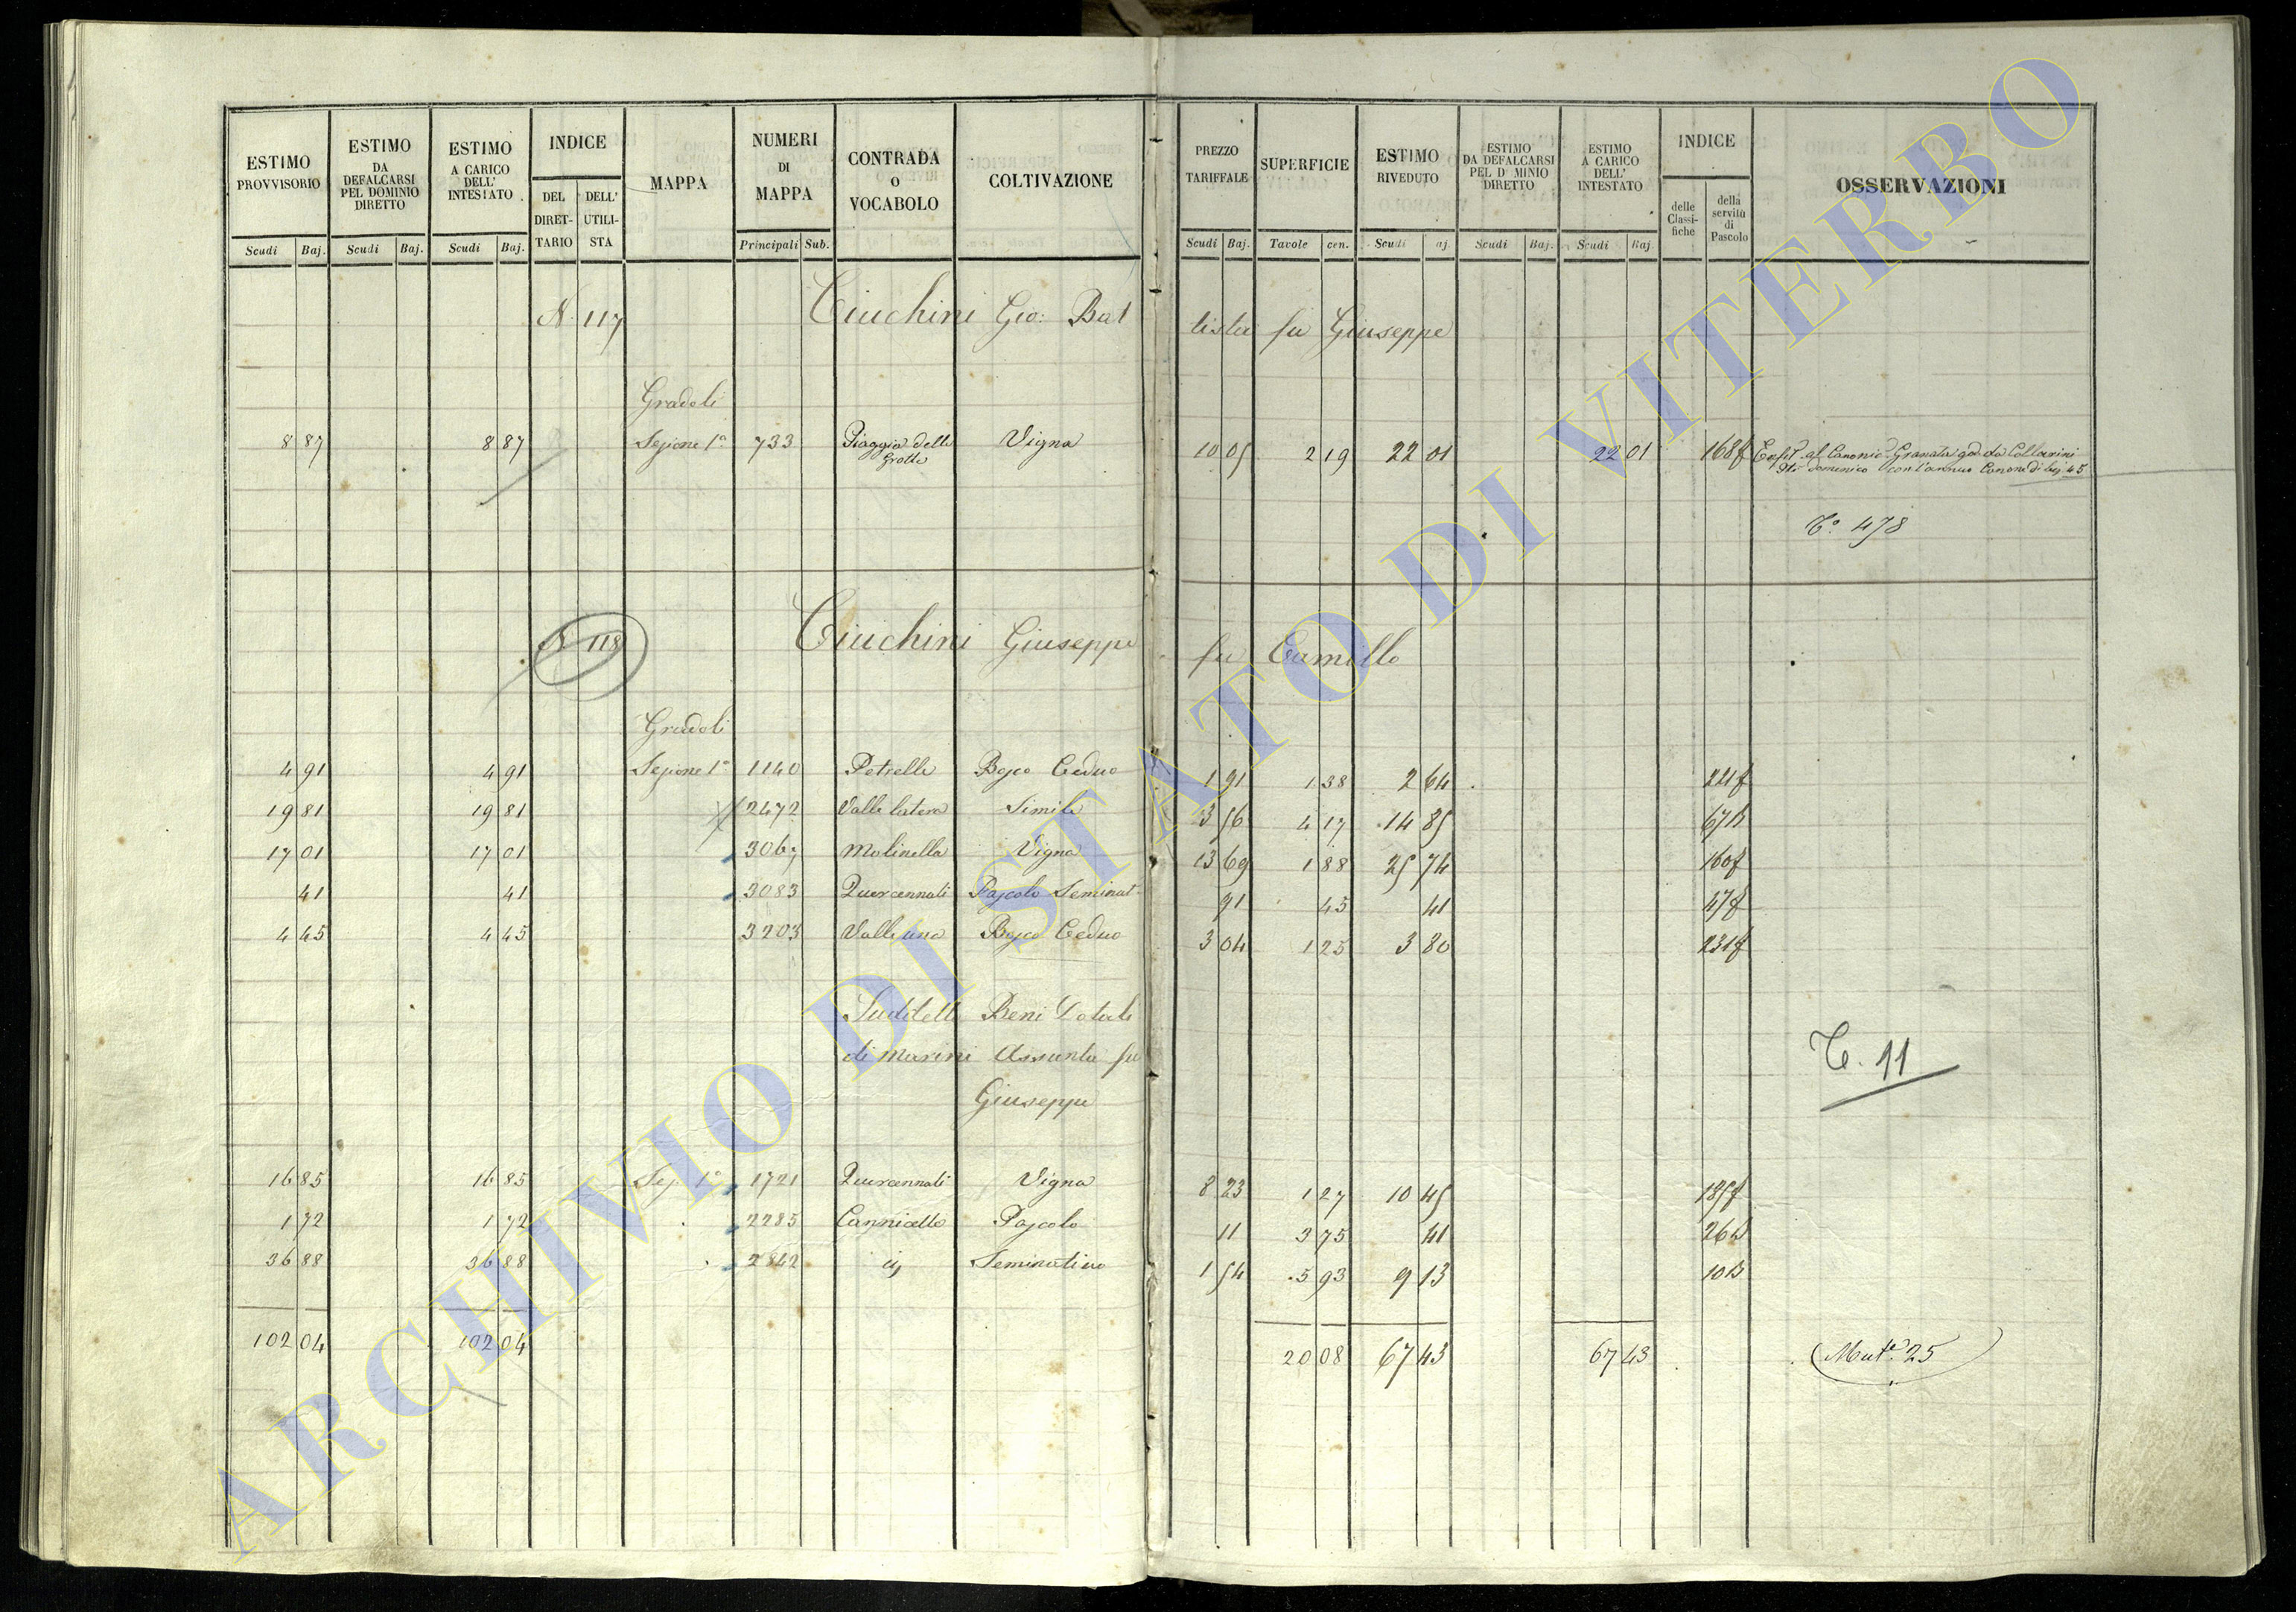 ESTIMO PROVVISORIO | ESTIMO DA DEFALCARSI PEL DOMINIO DIRETTO | ESTIMO A CARICO DELL' INTESTATO | INDICE | MAPPA | NUMERI DI MAPPA | CONTRADA O VOCABOLO | COLTIVAZIONE | PREZZO TARIFFALE | SUPERFICIE | ESTIMO RIVEDUTO | ESTIMO DA DEFALCARSI PEL D MINIO DIRETTO | ESTIMO A CARICO DELL' INTESTATO | INDICE | OSSERVAZIONI
DEL DIRET-TARIO | DELL' UTILI-STA | delle Classi-fiche | della servitù di Pascolo
Scudi Baj. | Scudi Baj. | Scudi Baj. | Principali Sub. | Scudi Baj. | Tavole cen. | Scudi aj. | Scudi Baj. | Scudi Baj.
N. 117 Ciuchini Gio: Battista fu Giuseppe
Gradoli
8 87 | 8 87 | Sezione 1ª | 733 | Piaggia delle Grotte | Vigna | 10 05 | 2 19 | 22 01 | 22 01 | 168f | al Canonic. Granata Domenico con l'annuo Canone di baj 45
Cº 478
N 118 Ciuchini Giuseppe fu Camillo
Gradoli
4 91 | 4 91 | Sezione 1ª | 1140 | Petrelle | Bosco Ceduo | 1 91 | 1 38 | 2 64 | 221f
19 81 | 19 81 | 2472 | Valle latera | Simile | 3 56 | 4 17 | 14 85 | 67b
17 01 | 17 01 | 3067 | Molinella | Vigna | 13 69 | 1 88 | 25 74 | 160f
41 | 41 | 3083 | Quercennati | Pascolo Seminat. | 91 | 45 | 41 | 47f
4 45 | 4 45 | 3203 | Valle una | Bosco Ceduo | 3 04 | 1 25 | 3 80 | 231f
Suddetto Beni Dotali
di Marini Assunta fu
Giuseppe
C. 11
16 85 | 16 85 | Sez 1ª | 1721 | Quercennati | Vigna | 8 23 | 1 27 | 10 45 | 185f
1 72 | 1 72 | 2285 | Cannicelle | Pascolo | 11 | 3 75 | 41 | 26b
36 88 | 36 88 | 2842 | Seminativo | 1 54 | 5 93 | 9 13 | 10b
102 04 | 102 04 | 20 08 | 67 43 | 67 43 | (Mutª 25)
ARCHIVIO DI STATO DI VITERBO